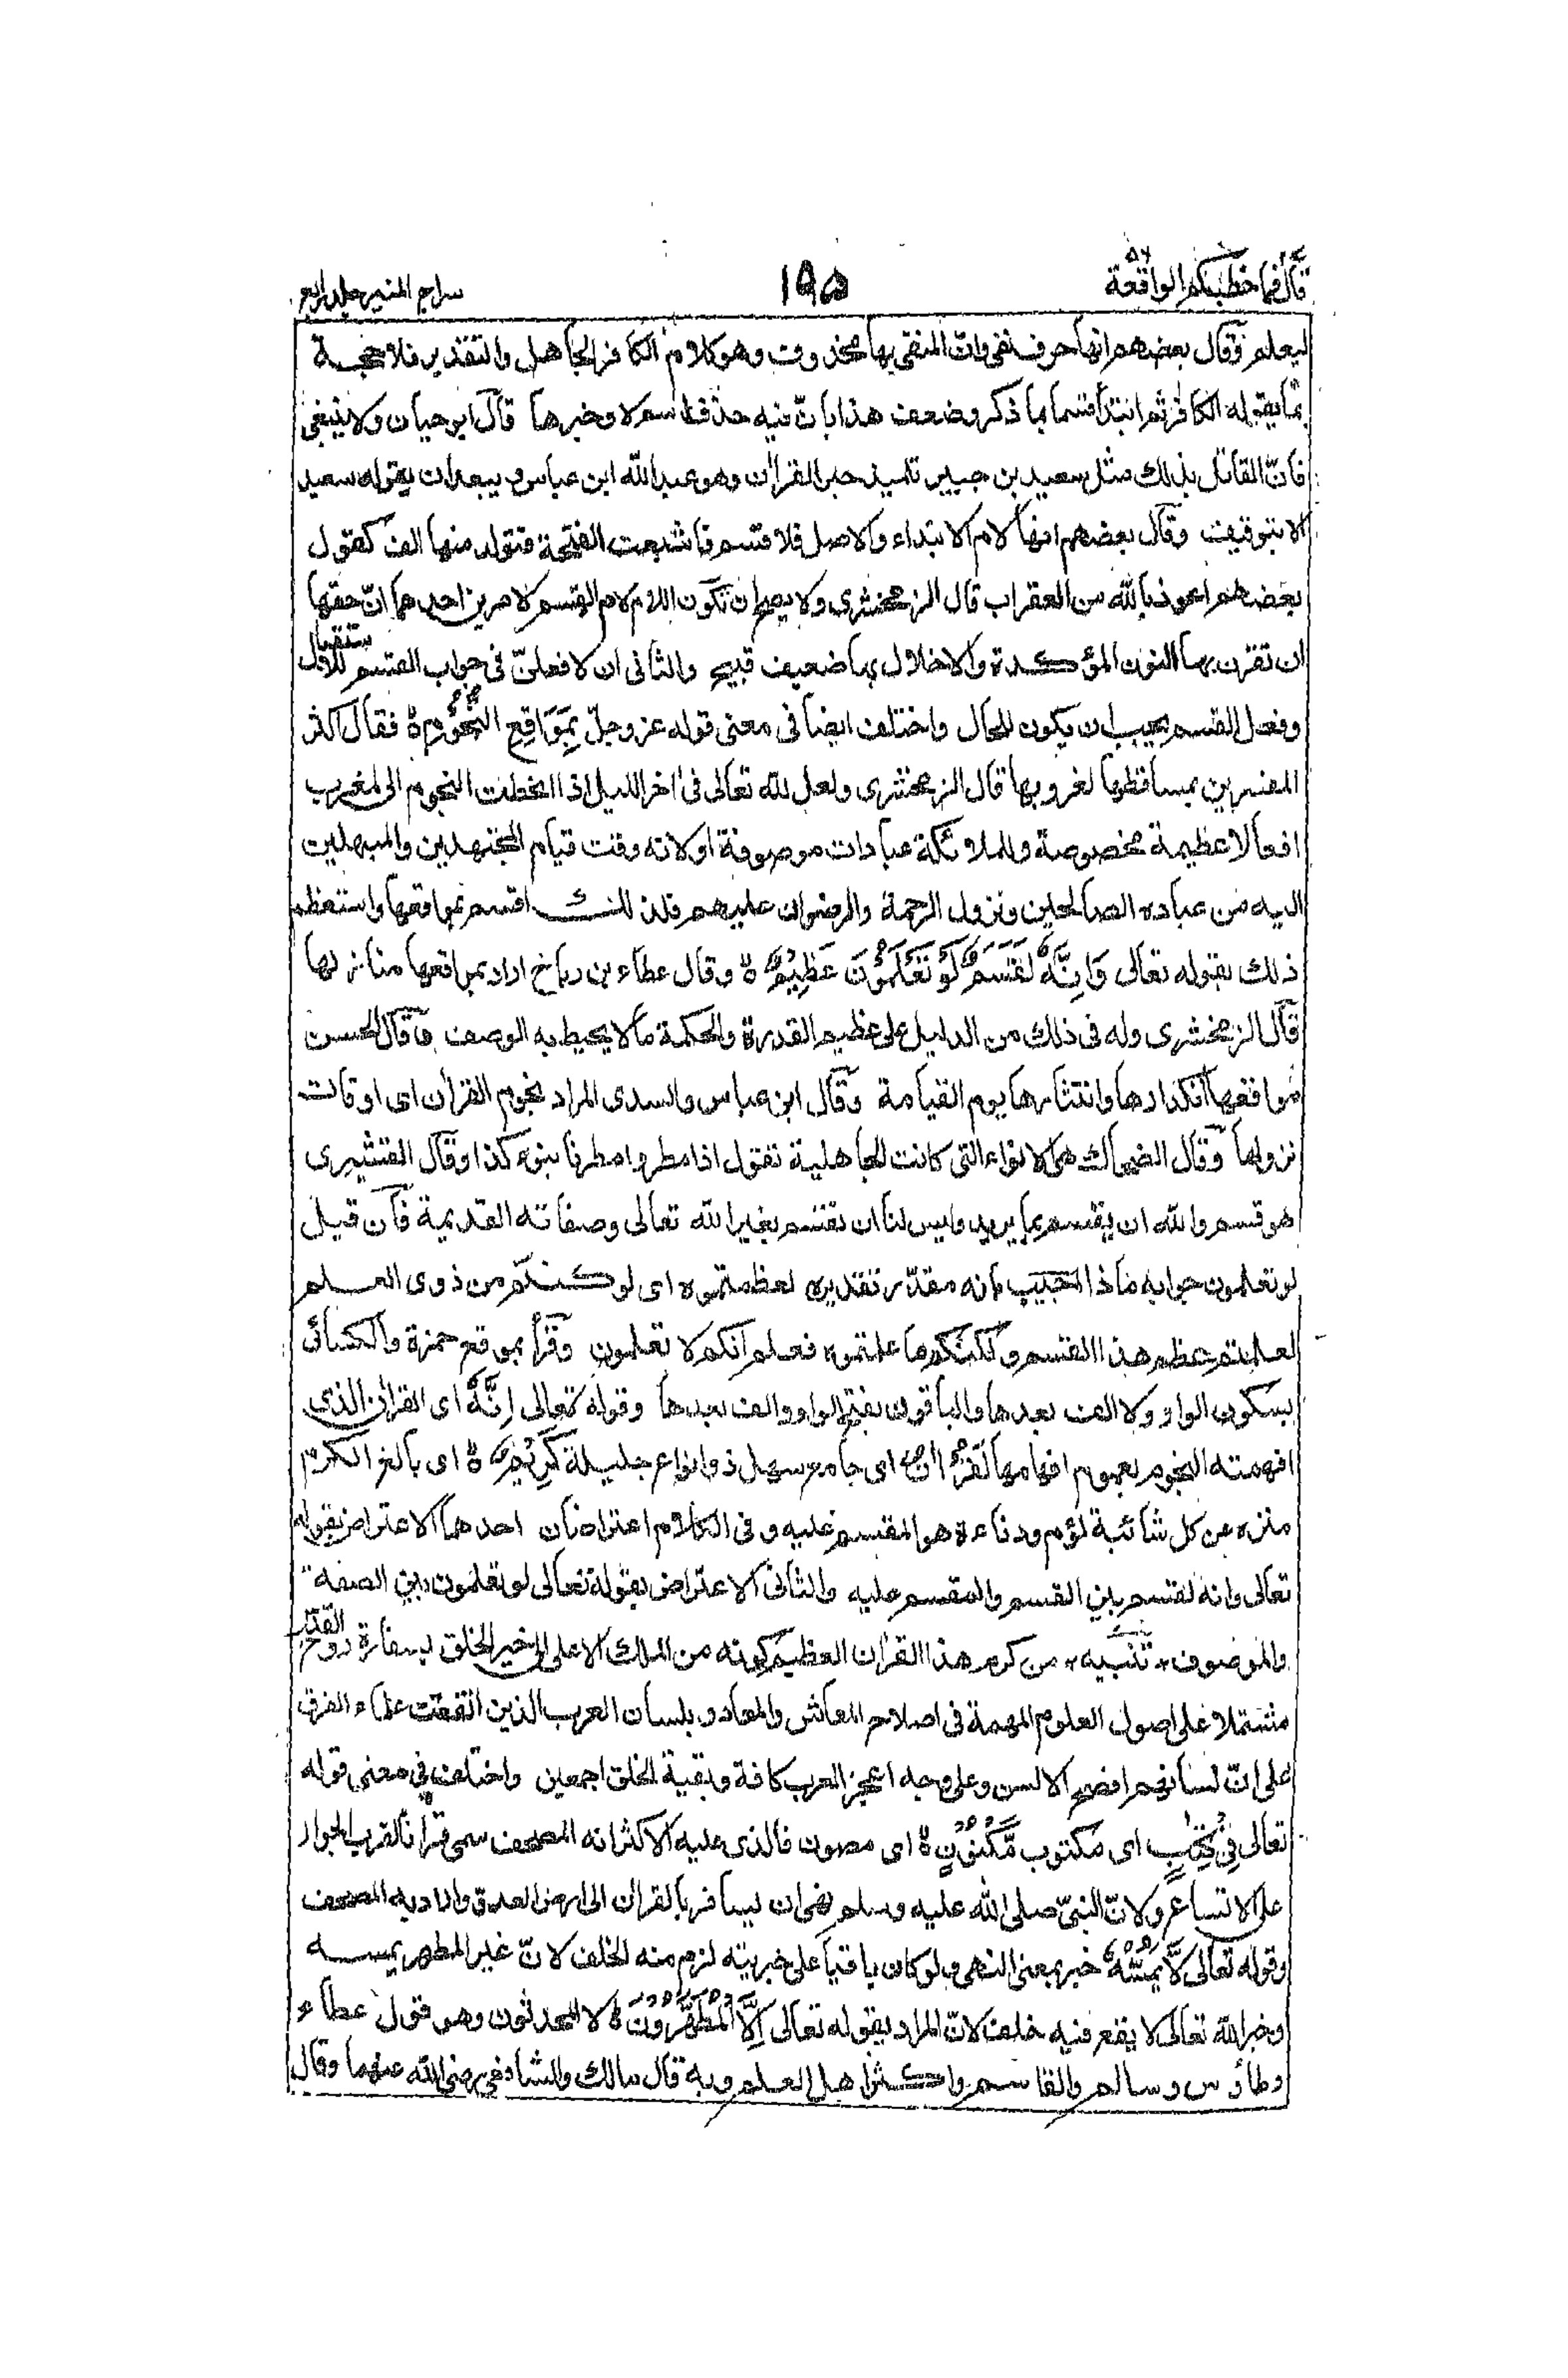 قال فما خطبكم الواقعة ٥٦
١٩٥
سراج المنير جلد رابع
ليعلم وقال بعضهم انها حرف نفى وانّ المنفى بها محذوف وهو كلام الكافر الجاهل والتقدير فلا حجة
بما يقوله الكافر ثم ابتدأ قسما بما ذكر وضعف هذا بانّ فيه حذف اسم لا وخبرها قال ابو حيان ولا ينبغى
فانّ القائل بذلك مثل سعيد بن جبير تلميذ حبر القراٰن وهو عبد الله ابن عباس ويبعد ان يقوله سعيد
الا بتوقيف وقال بعضهم انها لام الابتداء والاصل فلا قسم فاشبعت الفتحة فتولد منها الف كقول
بعضهم اعوذ بالله من العقراب قال الزمخشرى ولا يصح ان تكون اللام لام القسم لامرين احدهما انّ حقها
ان تقرن بها النون المؤكدة والاخلال بها ضعيف قبيح والثانى ان لافعلنّ فى جواب القسم للاستقبال
وفعل القسم يجب ان يكون للحال واختلف ايضا فى معنى قوله عز وجلّ بِمَوَاقِعِ النُّجُوْمِ ۝ فقال اكثر
المفسرين بمساقطها لغروبها قال الزمخشرى ولعل لله تعالى فى اٰخر الليل اذا انحطت النجوم الى المغرب
افعالا عظيمة مخصوصة وللملائكة عبادات موصوفة او لانه وقت قيام المجتهدين والمبتهلين
اليه من عباده الصالحين ونزول الرحمة والرضوان عليهم فلذلك اقسم بمواقعها واستعظم
ذلك بقوله تعالى وَاِنَّهٗ لَقَسَمٌ لَّوْ تَعْلَمُوْنَ عَظِيْمٌ ۝ وقال عطاء بن رباح اراد بمواقعها منازلها
قال الزمخشرى وله فى ذلك من الدليل على عظيم القدرة والحكمة ما لا يحيط به الوصف وقال الحسن
مواقعها انكدارها وانتثارها يوم القيامة وقال ابن عباس والسدى المراد نجوم القراٰن اى اوقات
نزولها وقال الضحاك هى الانواء التى كانت الجاهلية تقول اذا مطروا مطرنا بنوء كذا وقال القشيرى
هو قسم ولله ان يقسم بما يريد وليس لنا ان نقسم بغير الله تعالى وصفاته القديمة فان قيل
لو تعلمون جوابه ماذا اجيب بانه مقدّر تقديره لعظمتموه اى لو كنتم من ذوى العلم
لعلمتم عظم هذا القسم ولكنكم ما علمتموه فعلم انكم لا تعلمون وقرأ بموقع حمزة والكسائى
بسكون الواو ولا الف بعدها والباقون بفتح الواو والف بعدها وقوله تعالى اِنَّهٗ اى القراٰن الذى
افهمته النجوم بعموم افهامها لَقُرْاٰنٌ اى جامع سهل ذو انواع جليلة كَرِيْمٌ ۝ اى بالغ الكرم
منزه عن كل شائبة لؤم ودناءة هو المقسم عليه وفى الكلام اعتراضان احدهما الاعتراض بقوله
تعالى وانه لقسم بين القسم والمقسم عليه والثانى الاعتراض بقوله تعالى لو تعلمون بين الصفة
والموصوف * تنبيه * من كرم هذا القراٰن العظيم كونه من الملك الاعلى الى خير الخلق بسفارة روح القدس
مشتملا على اصول العلوم المهمة فى اصلاح المعاش والمعاد وبلسان العرب الذين اتفقت علماء الفرق
على انّ لسانهم افصح الالسن وعلى وجه اعجز العرب كافة وبقية الخلق اجمعين واختلف فى معنى قوله
تعالى فِىْ كِتٰبٍ اى مكتوب مَّكْنُوْنٍ ۝ اى مصون فالذى عليه الاكثر انه المصحف سمى قراٰنا لقرب الجوار
على الاتساع ولانّ النبىّ صلى الله عليه وسلم نهى ان يسافر بالقراٰن الى ارض العدوّ واراد به المصحف
وقوله تعالى لَّا يَمَسُّهٗ خبر بمعنى النهى ولو كان باقيا على خبريته لزم منه الخلف لانّ غير المطهر يمسه
وخبر الله تعالى لا يقع فيه خلف لانّ المراد بقوله تعالى اِلَّا الْمُطَهَّرُوْنَ ۝ لا المحدثون وهو قول عطاء
وطاؤس وسالم والقاسم واكثر اهل العلم وبه قال مالك والشافعى رضى الله عنهما وقال